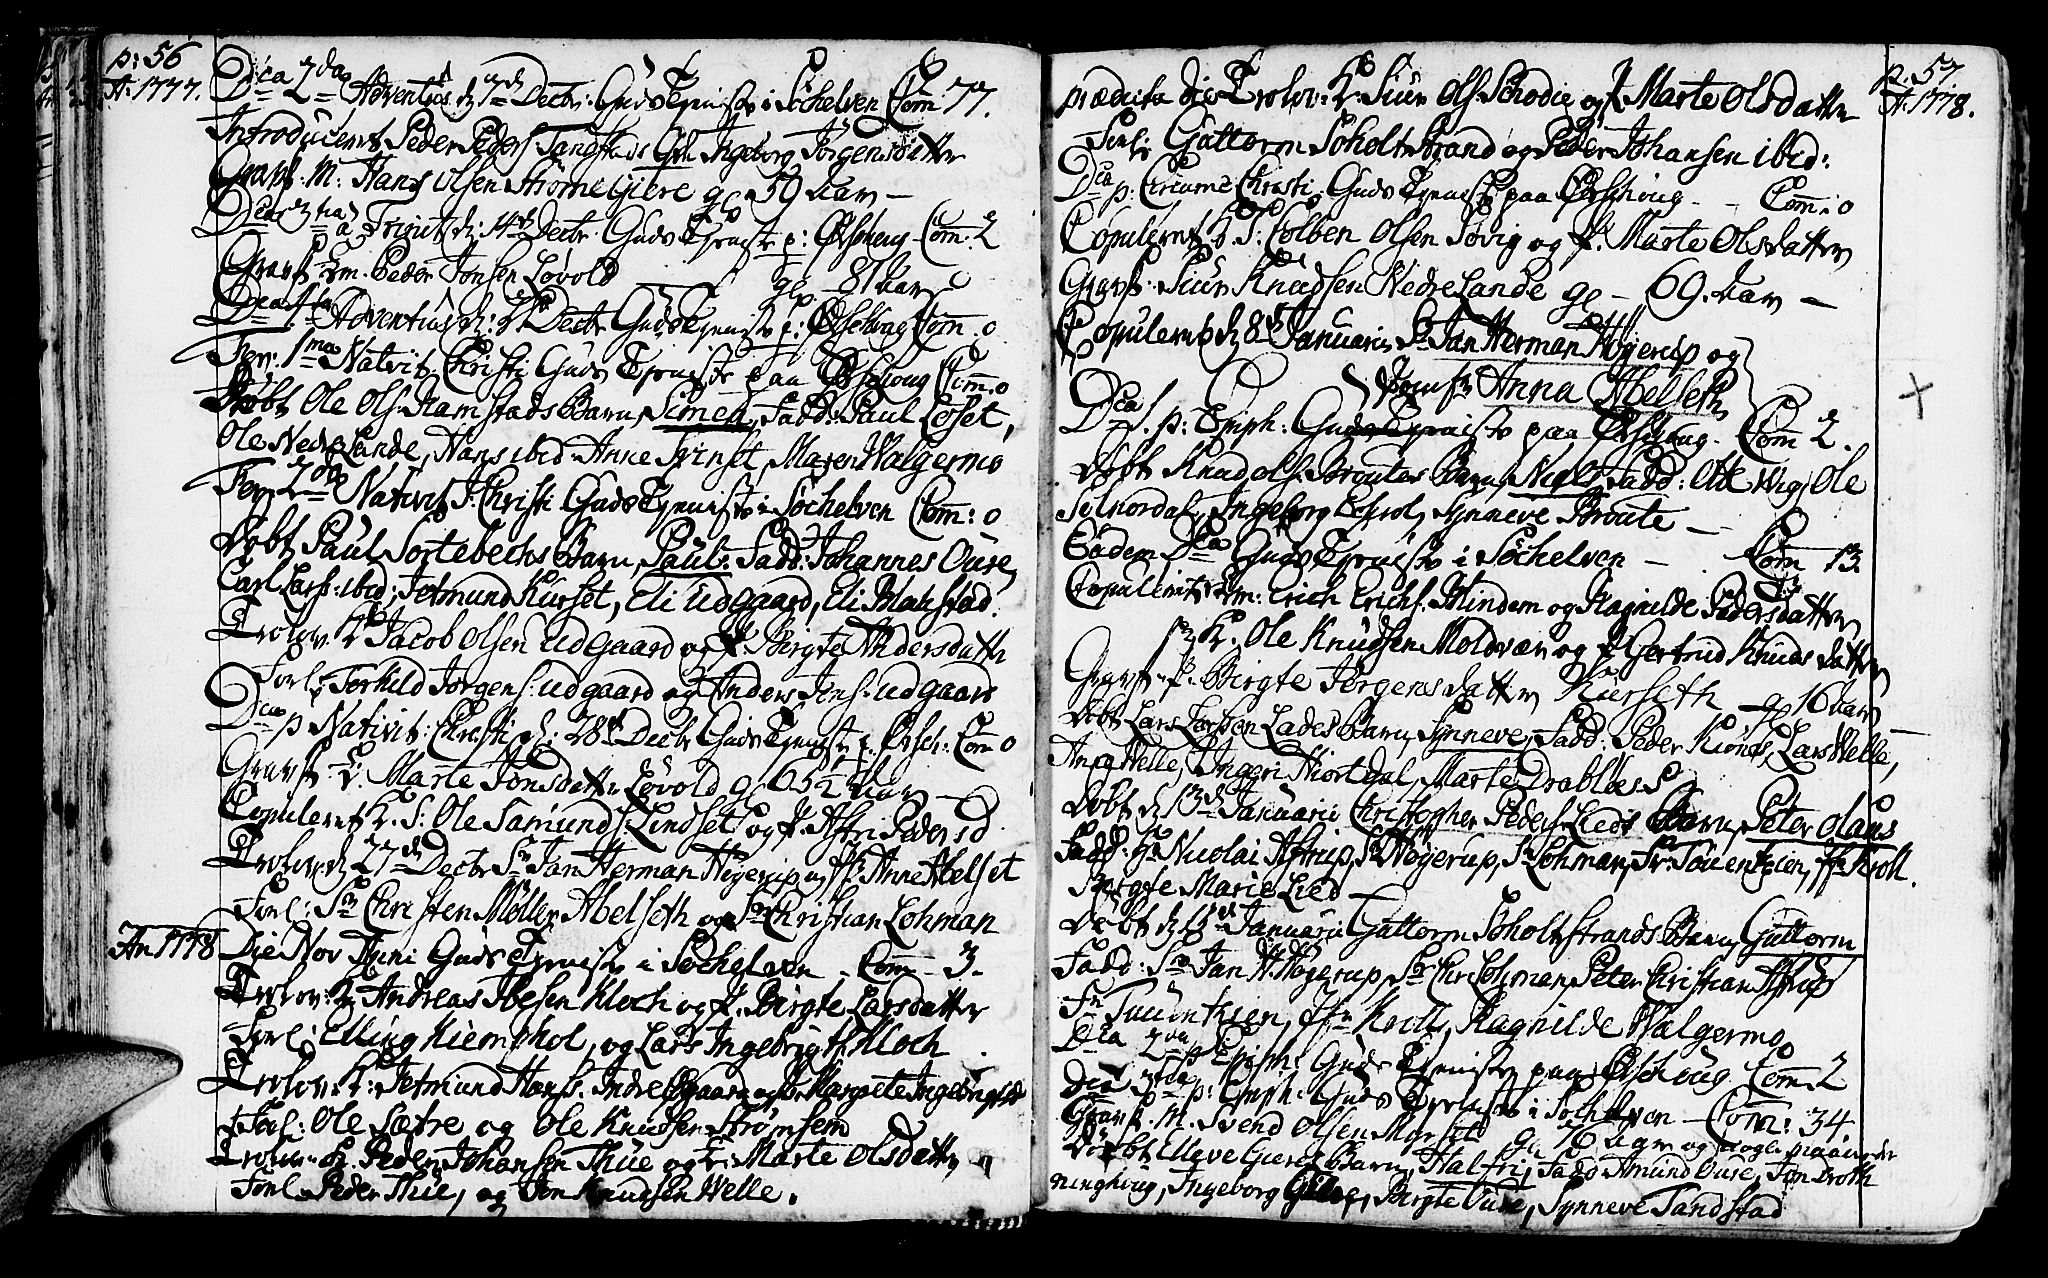 p: 56
A: 1777.
Dca 2da Adventus d 7de Decbr: Guds Tjeniste i Söchelven Com 77.
Introduceret Peder Peders: Tandstads Qvi Ingeborg Jörgensdatter
Gravf: M: Hans Olsen Strömegiere gl 50 Aar —
Dca 3tia Advent d: 14de Decbr. Guds Tjeniste p: Ørschoug Com. 2
Gravf Em. Peder Jonsen Løvold gl 81 Aar
Dca 4ta Adventus d: 21 Decbr Guds Tjeniste p: Ørschoug Com: 0
Fer: 1ma Nativit. Christi Guds Tjeniste paa Ørschoug Com: 0
Døbt Ole Ols: Ramstads Barn, Simen, Fadd: Paul Løset,
Ole Nedre Lande, Hans ibid Anne Svinset, Maren Walgermo
Fer. 2da Nativit J: Christi Guds Tjeniste i Söchelven Com: 0
Døbt Paul Sortebechs Barn, Paul: Fadd: Johannes Oure,
Carl Lars: ibid: Jetmund Kurset, Eli Udgaard, Eli Machstad.
Trolov: K Jacob Olsen Udgaard og P. Birgte Andersdatter
Forl: Torkild Jørgens: Udgaard og Anders Jons: Udgaard
Dca p Nativit: Christi d: 28de Decbr Guds Tjeniste p. Ørsch: Com 0
Gravf E: Marte Jonsdatter Løvold gl 65½ Aar
Copuleret K. S: Ole Samunds: Lindset og P. Aftri Pedersd
Trolov. d 27de Decbr Sr Jan Herman Høyerup og Jfr. Anne Abelset
Forl: Sr Christen Møller Abelseth og Sr Christian Lohman
An 1778
Die Nov Anni Guds Tjeniste i Söchelven — Com — 3.
Trolov: K Andreas Ibsen Kloch og P. Birgte Larsdatter
Forl: Elling Hiemshol, og Lars Ingebrigts Kloch
Trolov: K: Jetmund Hans. Indre Ougaard og P. Margrete Ingebrigtsd
Forl: Ole Sætre og Ole Knudsen Strømsem
Trolov: K. Peder Johansen Thue og P: Marte Olsdatter
Forl Peder Thue, og Jon Knudsen Welle.
p. 57
A: 1778.
prædicta die Trolov: K. Siur Ols. Schodie og P Marte Olsdatter
Forl: Guttorm Soholt Strand og Peder Johansen ibid:
Dca p: Circumc Christi: Guds Tjeniste paa Ørschoug — Com: 0
Copuleret K S: Colben Olsen Søvig og P. Marte Olsdatter
Gravf: Siur Knudsen Nedre Lande gl — 69. Aar —
Copuleret d 8de Januarii Sr Jan Herman Høyerup og
Jomfr Anna Abelseth
Dca 1. p: Epiph: Guds Tjeniste paa Ørschoug. Com 2.
Døbt Knud Ols: Broutes Barn, Niels, Fadd: Ole Wig, Ole
Selnordal, Ingeborg Løvol, Synneve Broute —
Eadem Dca Guds Tjeniste i Söchelven — Com 13.
Copuleret Em: Erich Erichs: Mindem og Ragnilde Pedersdatter
K. Ole Knudsen Moldvær og P Gertrud Knuds datter
Gravf P. Birgte Jørgensdatter Kurseth gl 16 Aar
Døbt Lars Larsen Lades Barn, Synneve, Fadd: Peder Kiønes, Lars Welle,
Anna Welle, Ingeri Hiortdal, Marte Drabløes
Døbt d 13de Januarii Christopher Peders: Lieds Barn, Peter Olaus
Fadd: Hr Nicolai Astrup, Sr Høyerup, Sr Lohman, Fr: Tuuentzien, Jfr Kroll.
Birgte Marie Lied —
Døbt d 13de Januarii Guttorm Soholt Strands Barn, Guttorm
Fadd: Sr Jan H. Høyerup, Sr Chr: Lohman, Peter Christian Astrup
Fr Tuuentzien, Jfr Kroll, Ragnilde Walgermo
Dca 2da p Epiph: Guds Tjeniste paa Ørschoug Com. 2
Dca 3tia p: Epiph: Guds Tjeniste i Söchelven — Com: 34
Gravf. M. Svend Olsen Morset gl 76 Aar og nogle maaneder
Døbt Elleve Gieres Barn, Halfri, Fadd Amund Oure, Jon Droth
ninghoug, Ingeborg Giere, Birgte Oure, Synneve Tandstad